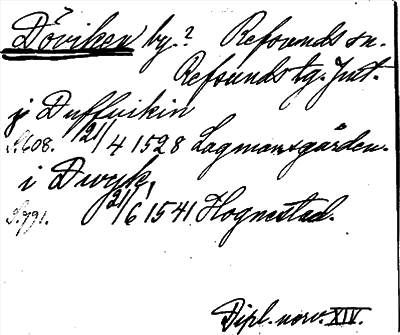 Döviken by.? Refsunds sn.
Refsunds tg. Jmt.
j Duffvikin
S. 608. 21/4 1528 Lagmansgården.
i Dwyk,
S. 791. 21/6 1541 Hognestad.
Dipl. norv. XIV.